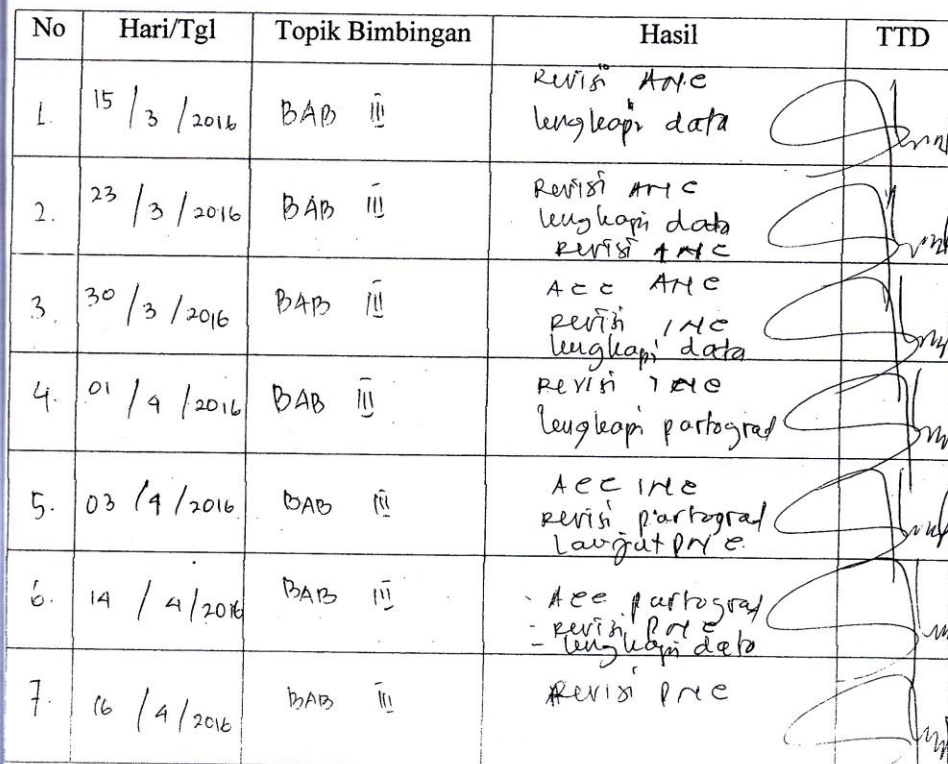 No Hari/Tgl Topik Bimbingan Hasil TTD
1. 15/3/2016 BAB III Revisi ANC
lengkapi data
2. 23/3/2016 BAB III Revisi ANC
lengkapi data
Revisi ANC
3. 30/3/2016 BAB III Acc ANC
Revisi INC
lengkapi data
4. 01/4/2016 BAB III Revisi INC
lengkapi partograf
5. 03/4/2016 BAB III Acc INC
Revisi partograf
Lanjut PNC
6. 14/4/2016 BAB III - Acc partograf
- Revisi PNC
- lengkapi data
7. 16/4/2016 BAB III Revisi PNC